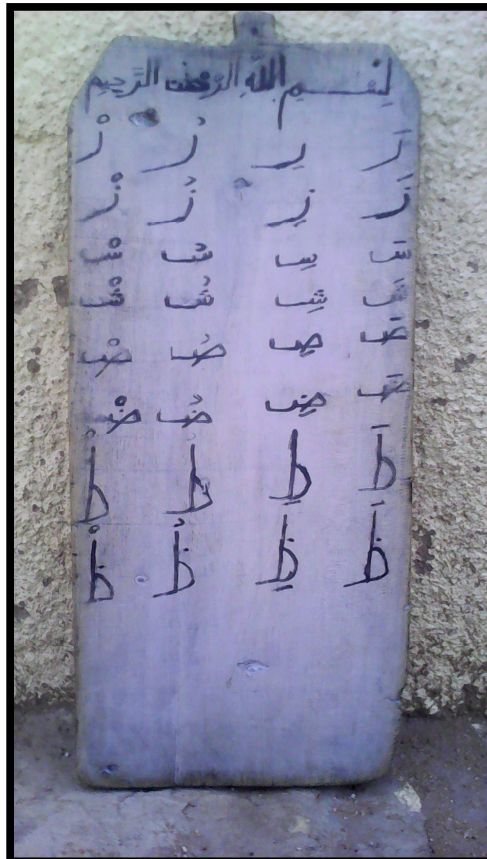 بِسْمِ اللَّهِ الرَّحْمٰنِ الرَّحِيمِ
رَ رِ رُ رْ
زَ زِ زُ زْ
سَ سِ سُ سْ
شَ شِ شُ شْ
صَ صِ صُ صْ
ضَ ضِ ضُ ضْ
طَ طِ طُ طْ
ظَ ظِ ظُ ظْ